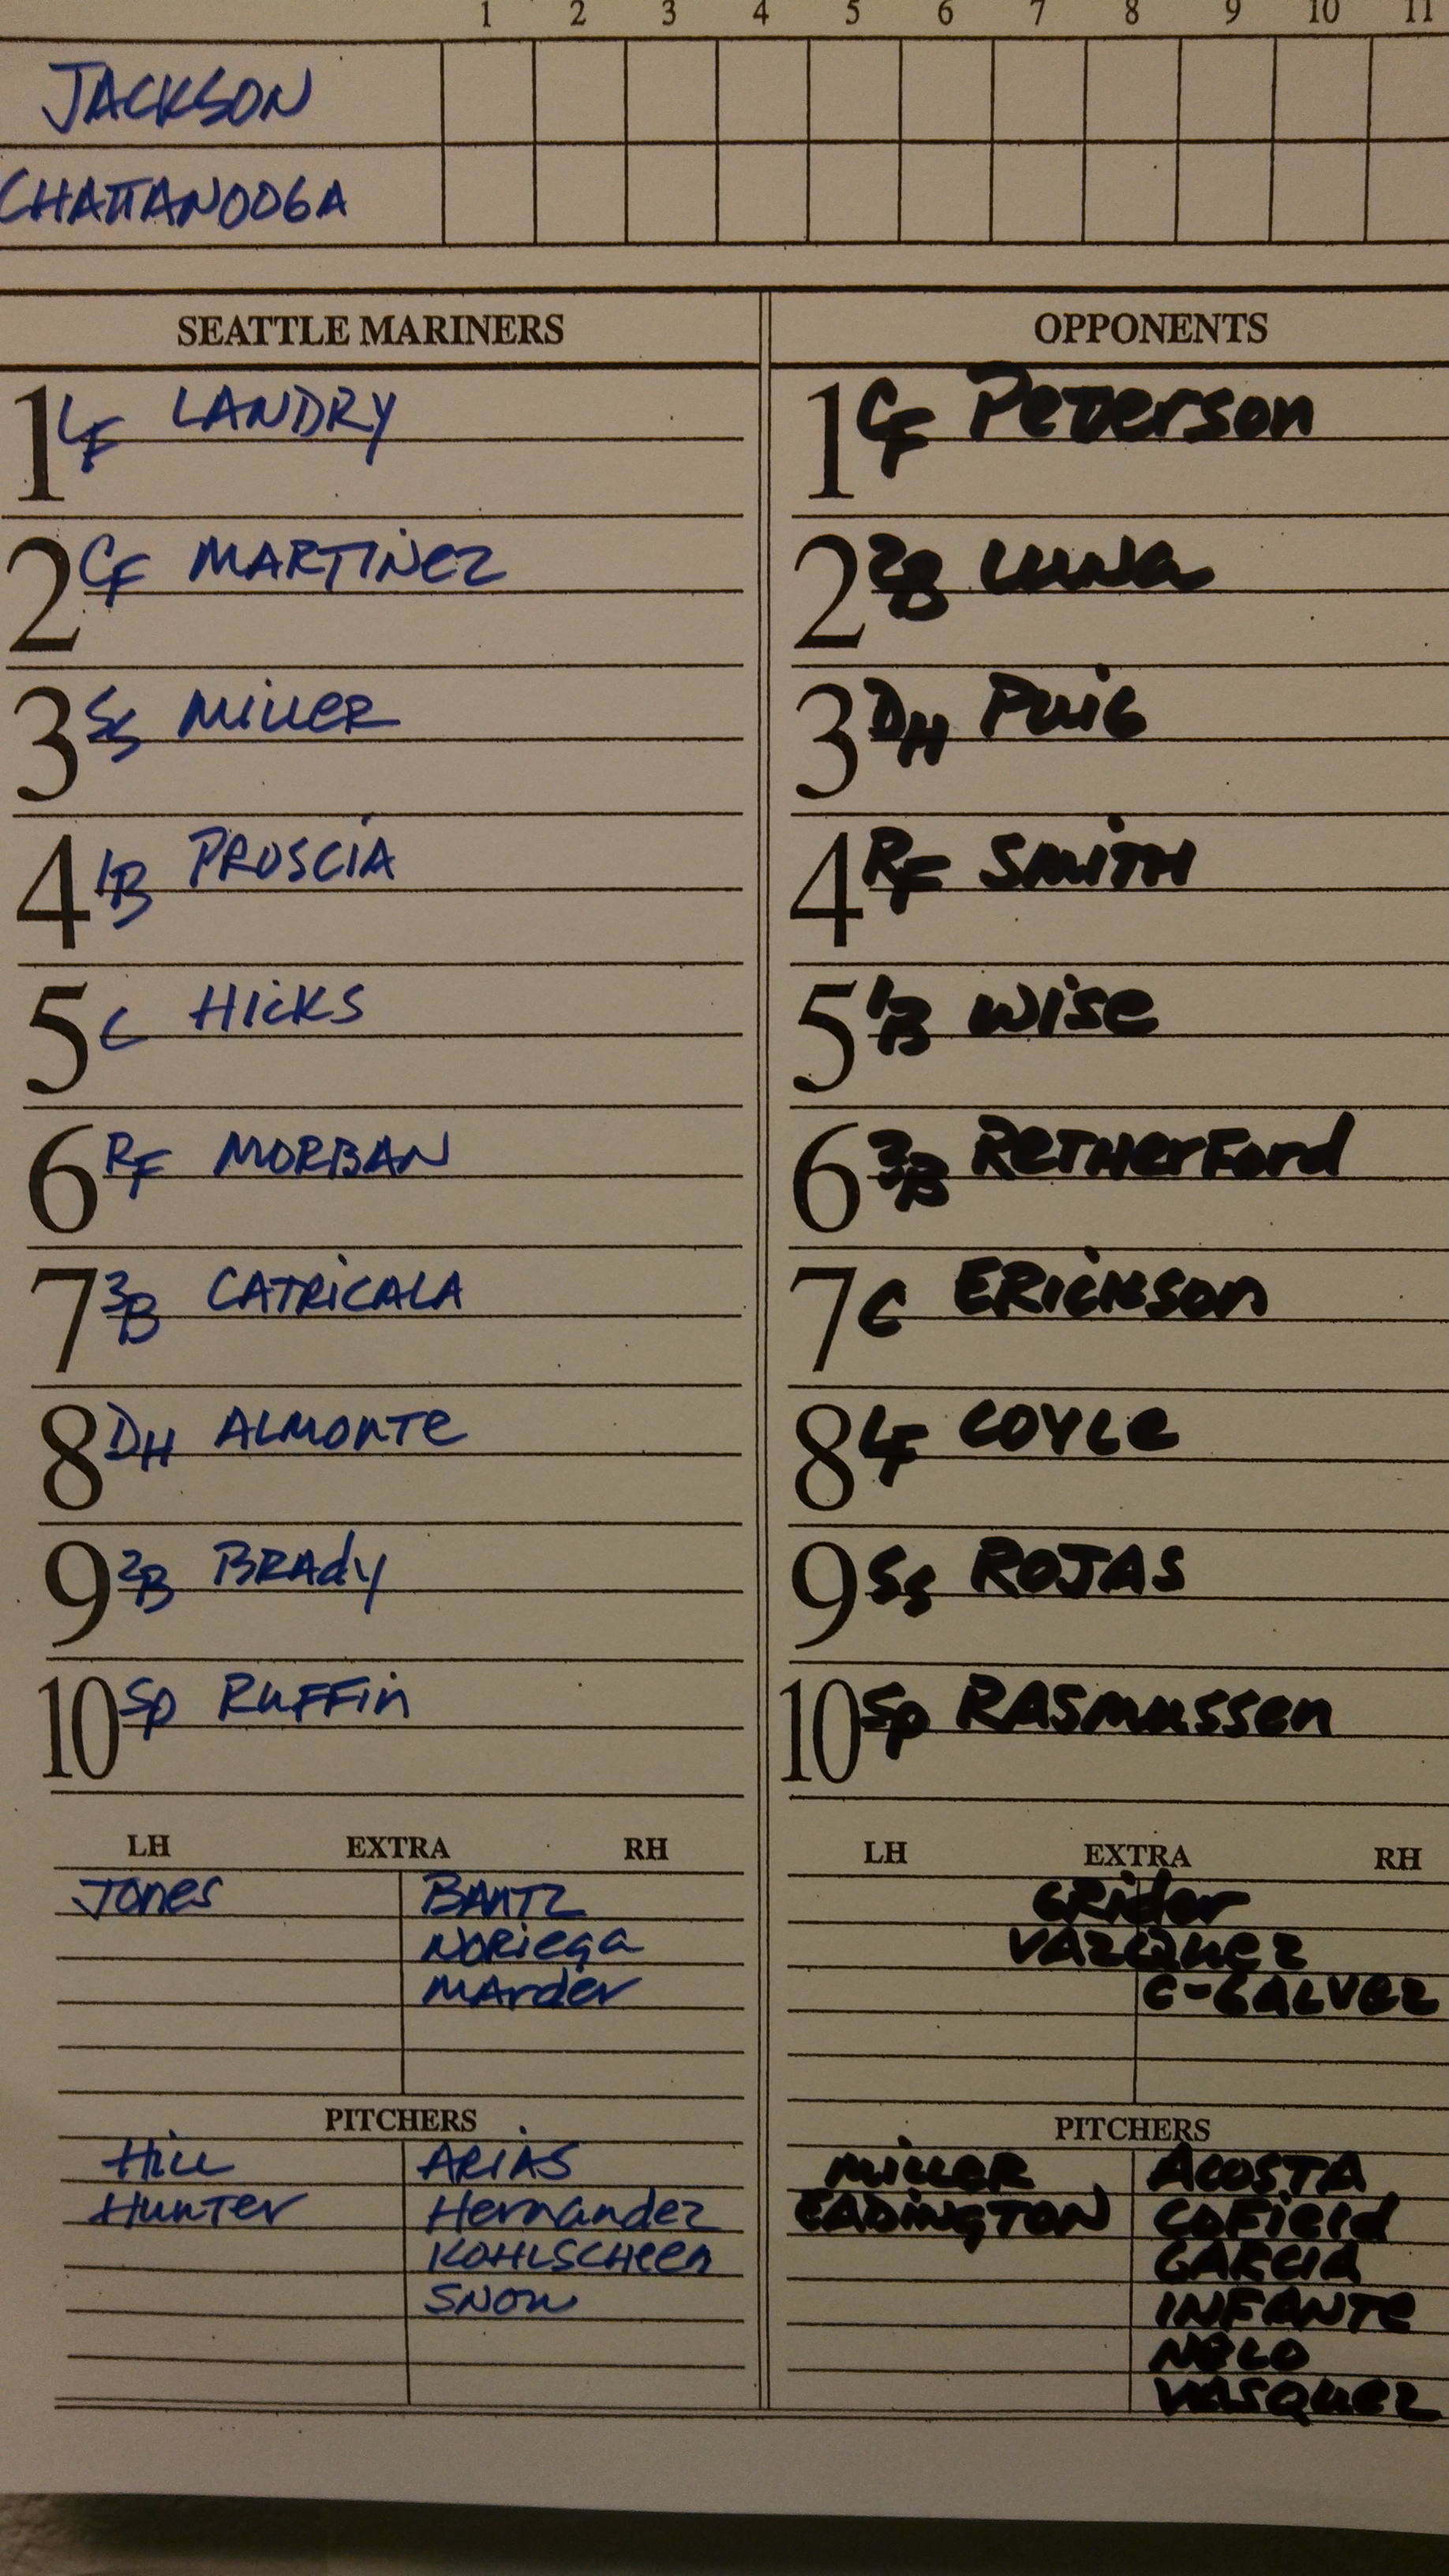 1 2 3 4 5 6 7 8 9 10 11
JACKSON
CHATTANOOGA
SEATTLE MARINERS
1 LF LANDRY
2 CF MARTINEZ
3 SS MILLER
4 1B PROSCIA
5 C HICKS
6 RF MORBAN
7 3B CATRICALA
8 DH ALMONTE
9 2B BRAdy
10 SP RUFFin
LH EXTRA RH
Jones BANTZ
NORiega
MArder
PITCHERS
Hill ARIAS
Hunter Hernandez
KOHLSCHeen
SNOW
OPPONENTS
1 CF PeTerson
2 2B LUNA
3 DH PuiG
4 RF SMITH
5 1B Wise
6 3B ReTHerFord
7 C ERickson
8 LF COYLe
9 SS ROJAS
10 SP RASmussen
LH EXTRA RH
GRider
VAZQuez
C-GALVez
PITCHERS
MiLLer ACOSTA
EADiNgTON CoField
GARCIA
INFANTe
NeLO
VASQuez